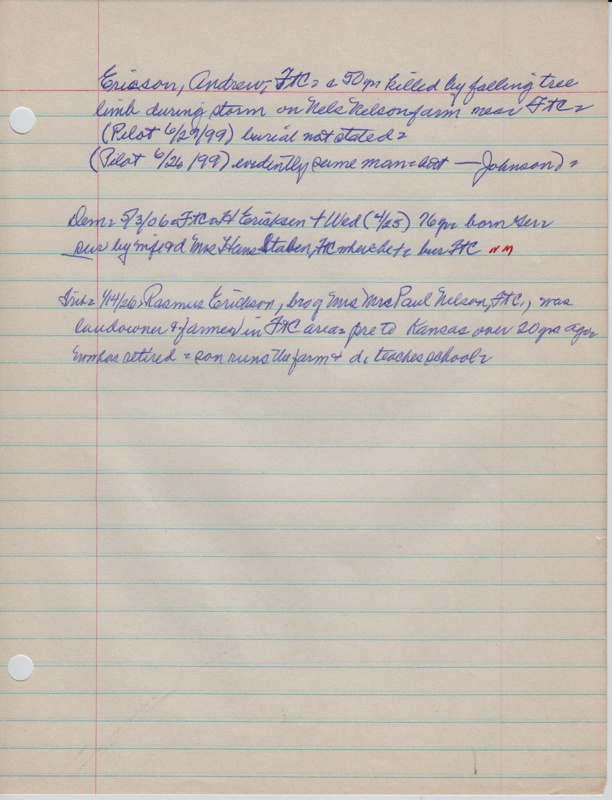 Ericson, Andrew, FtC = a 50 yr killed by falling tree
limb during storm on Nels Nelson farm near FtC =
(Pilot 6/29/99) burial not stated =
(Pilot 6/26/99) evidently same man = — Johnson) =
Dem = 5/3/06 = FtC = H Ericksen + Wed (4/25) 76 yr born Ger
sur by wife & d Mrs Hans Staben, FC where he + bur FtC NM
4/4/06, Rasmus Erickson, bro of Mrs Mrs Paul Nelson, FtC., was
landowner & farmer in FtC area = pre to Kansas over 20 yrs ago =
now has retired = son runs the farm & d, teaches school =